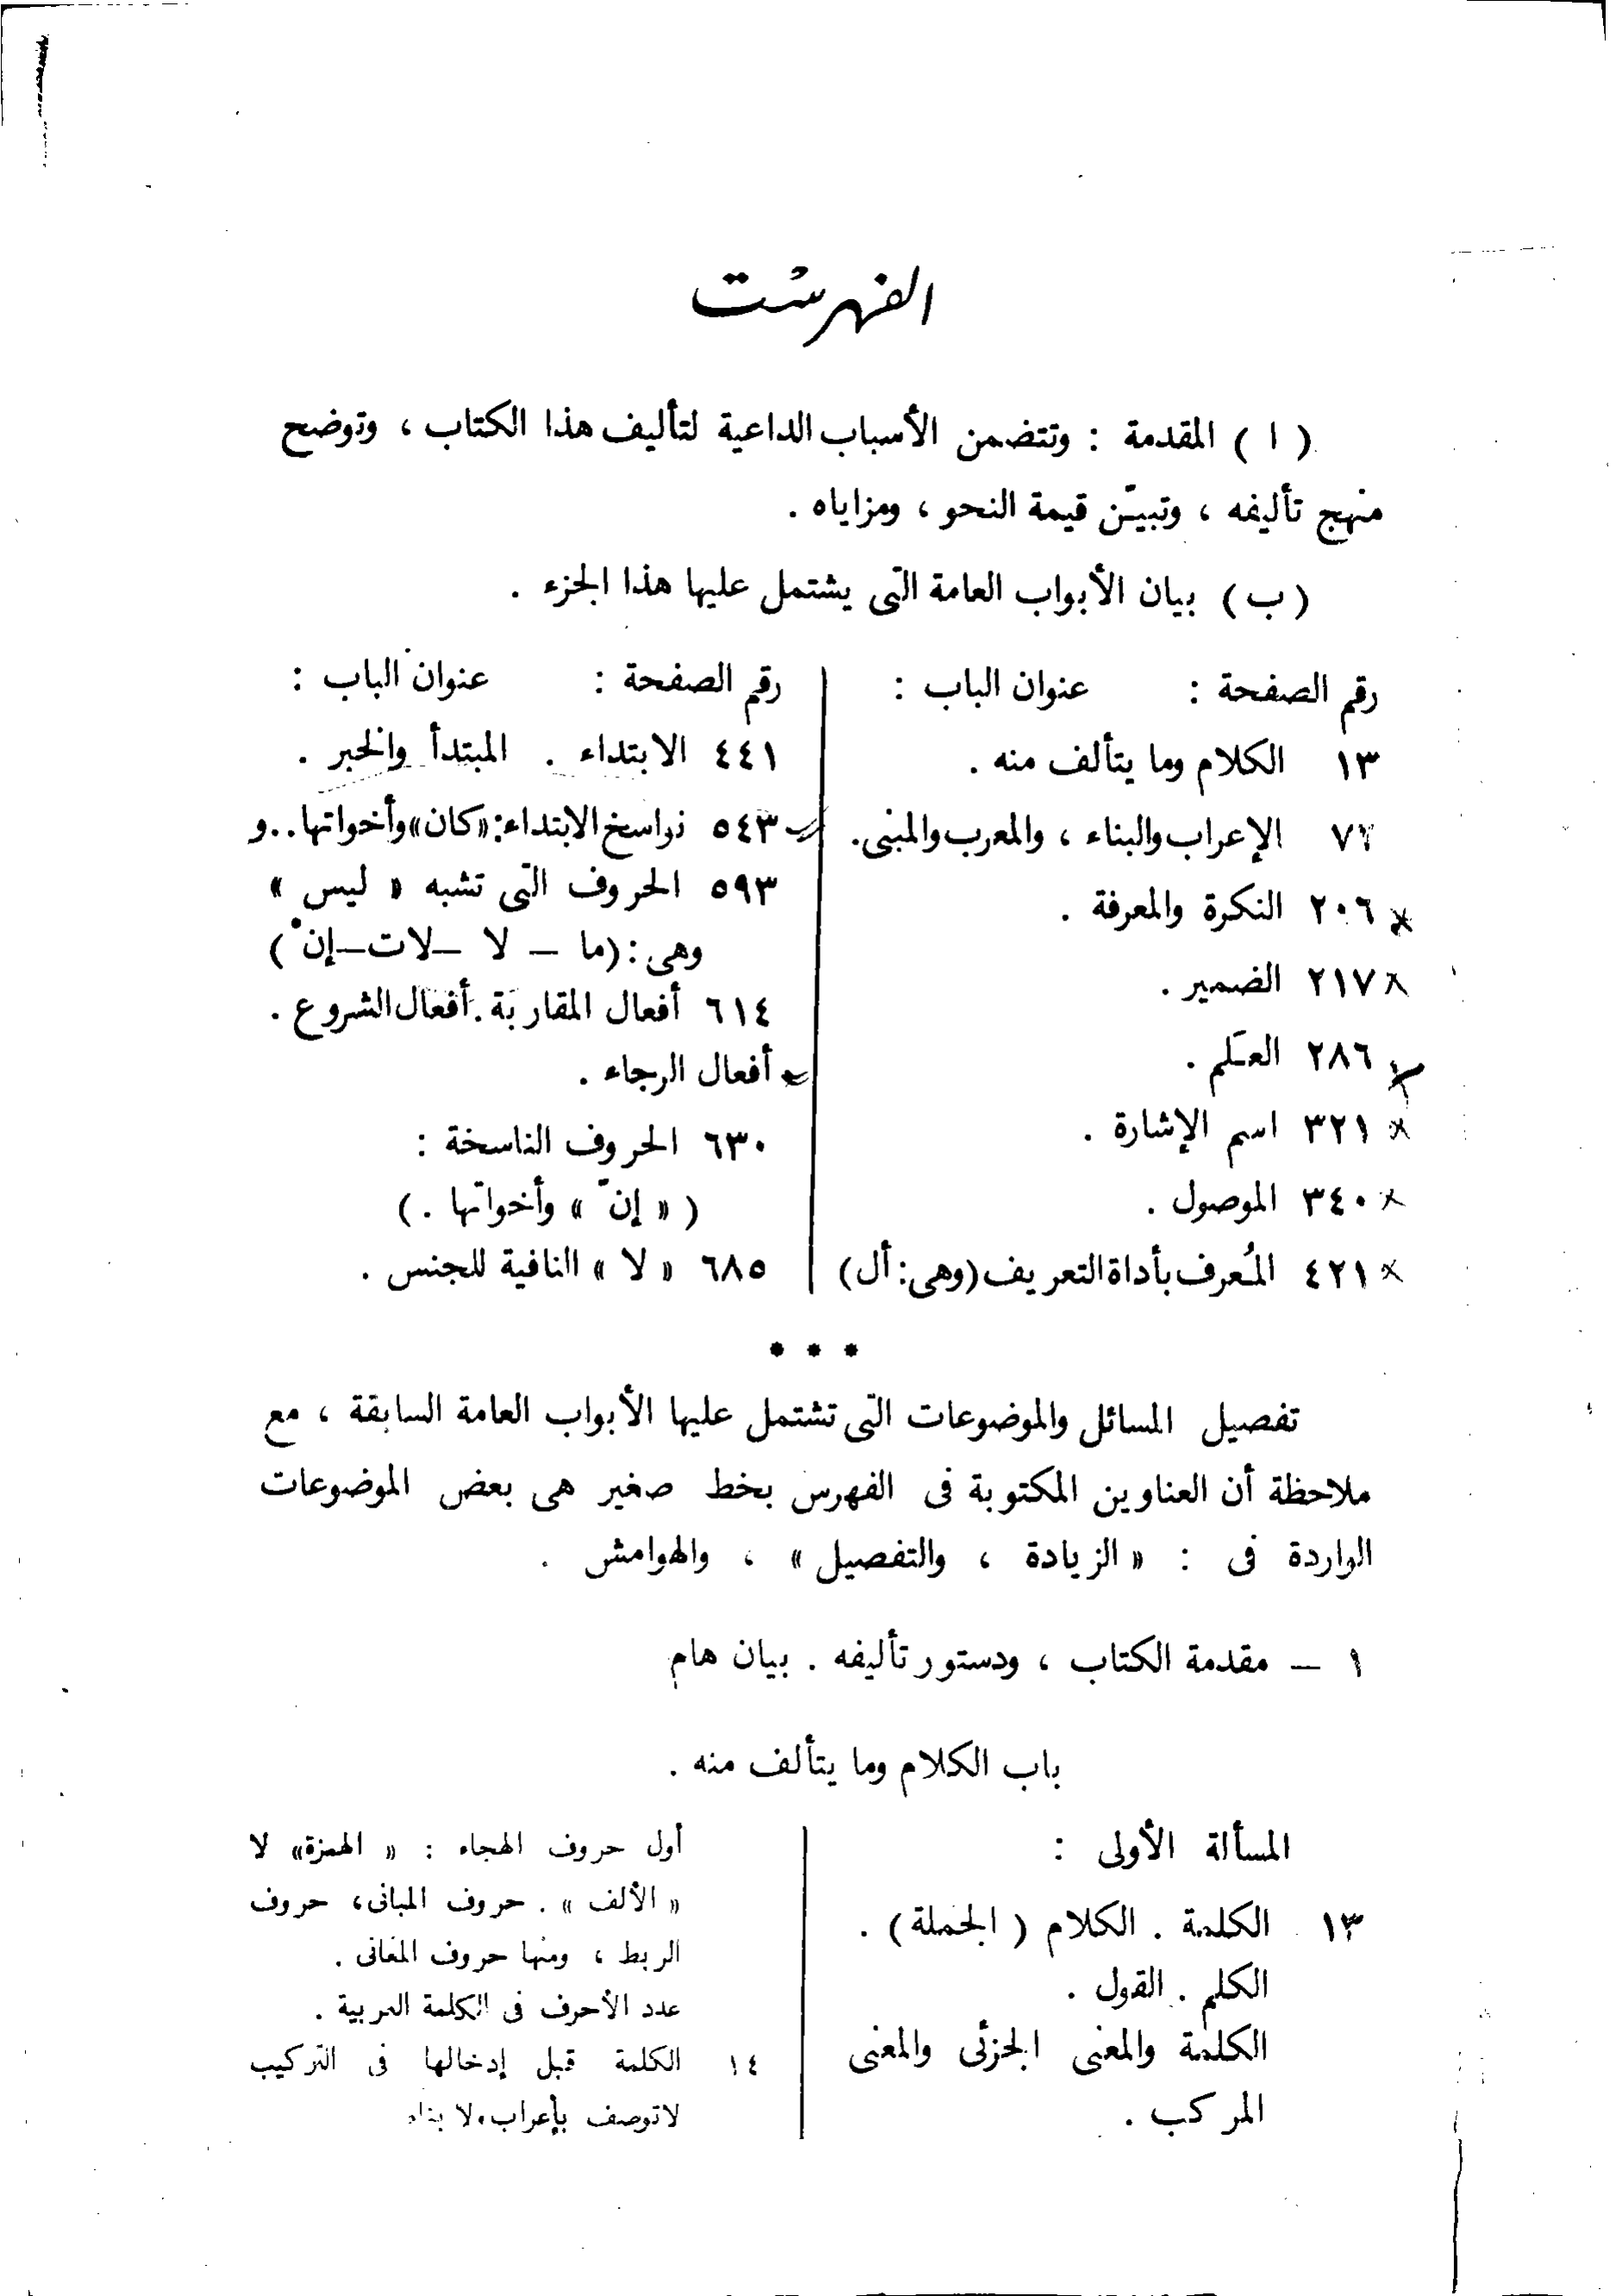 الفهرست
( ا ) المقدمة : وتتضمن الأسباب الداعية لتأليف هذا الكتاب ، وتوضح
منهج تأليفه ، وتبيّن قيمة النحو ، ومزاياه .
( ب ) بيان الأبواب العامة التى يشتمل عليها هذا الجزء .
رقم الصفحة : عنوان الباب :
١٣ الكلام وما يتألف منه .
٧٢ الإعراب والبناء ، والمعرب والمبنى .
٢٠٦ النكرة والمعرفة .
٢١٧ الضمير .
٢٨٦ العَلم .
٣٢١ اسم الإشارة .
٣٤٠ الموصول .
٤٢١ المُعرف بأداة التعريف (وهى : أل)
رقم الصفحة : عنوان الباب :
٤٤١ الابتداء . المبتدأ والخبر .
٥٤٣ نواسخ الابتداء : «كان» وأخواتها . . و
٥٩٣ الحروف التى تشبه « ليس »
وهى : (ما – لا – لات – إنْ )
٦١٤ أفعال المقاربة . أفعال الشروع .
أفعال الرجاء .
٦٣٠ الحروف الناسخة :
( « إنّ » وأخواتها . )
٦٨٥ « لا » النافية للجنس .
* * *
تفصيل المسائل والموضوعات التى تشتمل عليها الأبواب العامة السابقة ، مع
ملاحظة أن العناوين المكتوبة فى الفهرس بخط صغير هى بعض الموضوعات
الواردة فى : « الزيادة ، والتفصيل » ، والهوامش .
١ – مقدمة الكتاب ، ودستور تأليفه . بيان هام
باب الكلام وما يتألف منه .
المسألة الأولى :
١٣ الكلمة . الكلام ( الجملة ) .
الكلم . القول .
الكلمة والمعنى الجزئى والمعنى
المركب .
أول حروف الهجاء : « الهمزة» لا
« الألف » . حروف المبانى ، حروف
الربط ، ومنها حروف المعانى .
عدد الأحرف فى الكلمة العربية .
١٤ الكلمة قبل إدخالها فى التركيب
لاتوصف بإعراب ولا بناء